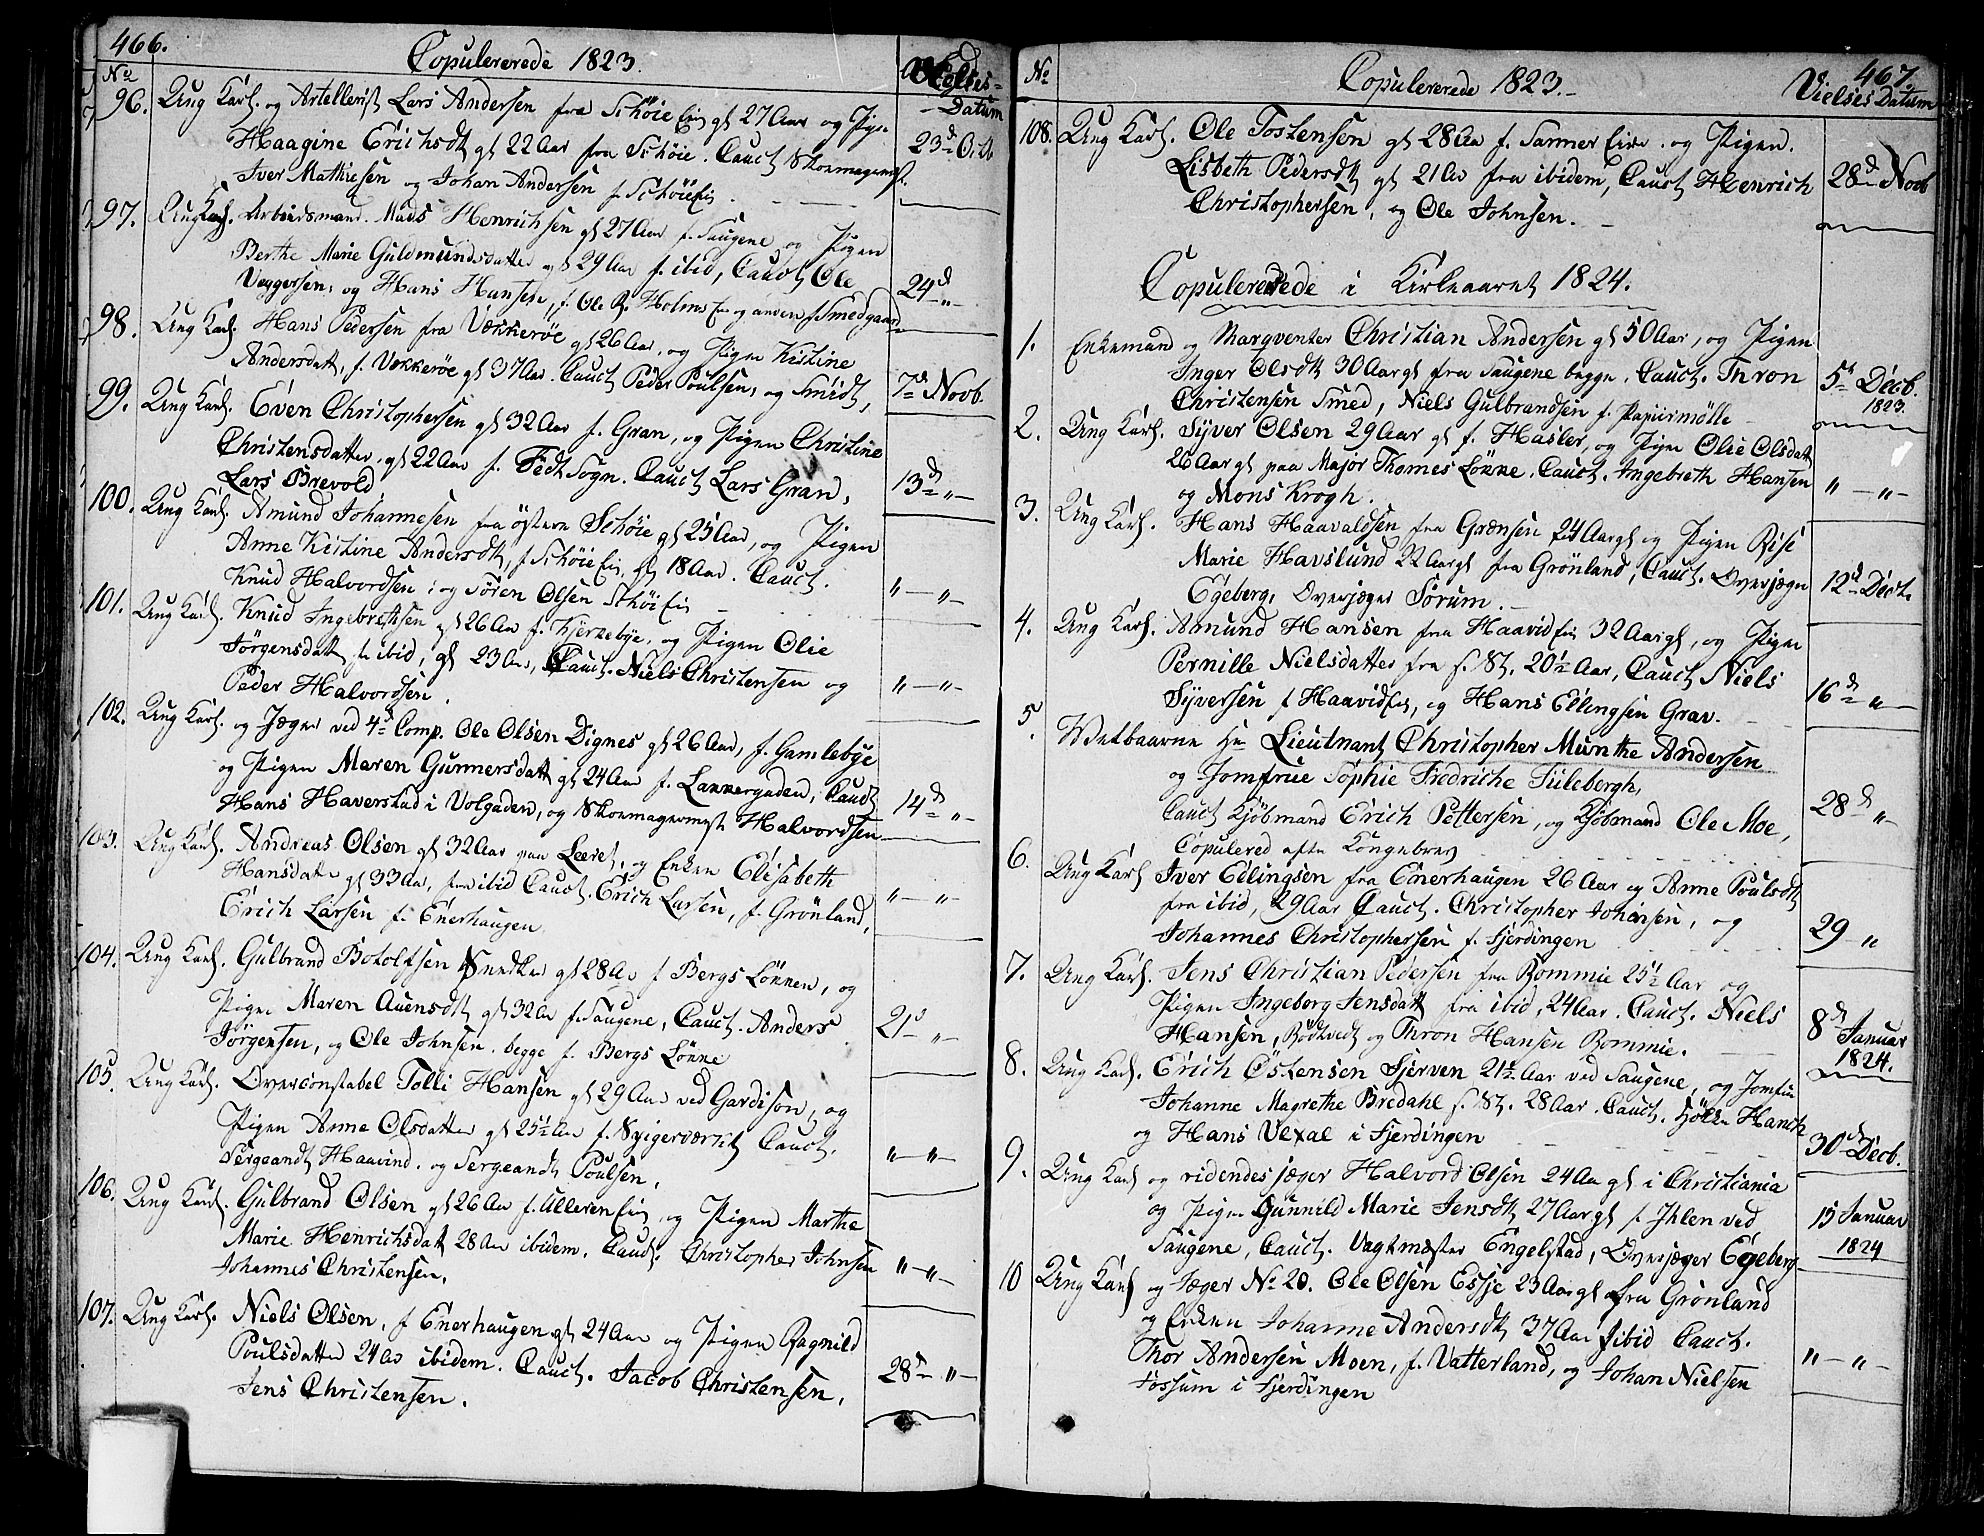 466.
Copulererede 1823.
No
Vielses-
Datum
96. Ung Karl. og Artellerist Lars Andersen fra Schöie Eie gl 27 Aar og Pige
Haagine Erichsdt gl 22 Aar fra Schöie. Cauct Skomagermst.
23d Octb
Iver Mathiesen og Johan Andersen f. Schöie Eie.
97. Ung Karl. Arbeidsmand. Mads Henrichsen gl 27 Aar f. Saugene og Pigen
Berthe Marie Guldmundsdatter gl 29 Aar f. ibid, Cauct Ole
Veggersen, og Hans Hansen, f. Ole R. Holms Eie og anden f Smedgaard
24d "
98. Ung Karl. Hans Pedersen fra Vækkeröe gl 26 Aar, og Pigen Kistine
Andersdatt, f. Vækkeröe gl 37 Aar. Cauct Peder Poulsen, og Smidt,
7d Novb.
99. Ung Karl. Even Christophersen gl 32 Aar f. Gran, og Pigen Christine
Christensdatter, gl 22 Aar f. Fedt Sogn. Cauct Lars Gran,
Lars Brevold
13d "
100. Ung Karl. Amund Johannesen fra östern Schöie gl 25 Aar, og Pigen
Anne Kistine Andersdt, f. Schöie Eie, gl 18 Aar. Cauct.
Knud Halvordsen, og Sören Olsen Schöi Eie
" — "
101. Ung Karl. Knud Ingebretsen gl 26 Aar f. Hjerkebye, og Pigen Olie
Jörgensdatt fr ibid, gl 23 Aar, Cauct. Niels Christensen og
Peder Halvordsen.
" — "
102. Ung Karl. og Jæger ved 4d Comp. Ole Olsen Dignes gl 26 Aar, f. Gamlebye
og Pigen Maren Gunnersdatt gl 24 Aar f. Lakkergaden, Cauct
Hans Haverstad i Volgaden, og Skomagermestr Halvordsen
14d "
103. Ung Karl. Andreas Olsen gl 32 Aar paa Leeret, og Enken Elisabeth
Hansdatter gl 33 Aar, fra ibid Cauct. Erich Larsen, f. Grönland,
Erich Larsen f. Enerhaugen
" — "
104. Ung Karl. Gulbrand Botolfsen Snedker gl 28 Aar f Bergs Lökken, og
Pigen Maren Auensdt gl 32 Aar f. Saugene, Cauct. Anders
Jörgensen, og Ole Johnsen. begge f. Bergs Lökke
21d "
105. Ung Karl. Overconstabel Tolli Hansen gl 29 Aar ved Gardison, og
Pigen Anne Olsdatter gl 25½ Aar f. Spigerværket Cauct.
Sergeandt Haavind. og Sergeandt Poulsen,
" — "
106. Ung Karl. Gulbrand Olsen gl 26 Aar f. Ulleren Eie, og Pigen Marthe
Marie Henrichsdatt 28 Aar ibidem. Cauct. Christopher Johnsen
Johannes Christensen.
" — "
107. Ung Karl. Niels Olsen, f Enerhaugen gl 24 Aar og Pigen Ragnild
Poulsdatter 24 Aar ibidem. Cauct. Jacob Christensen,
Jens Christensen.
28d "
467.
No
Copulererede 1823.
Vielses Datum
108. Ung Karl. Ole Tostensen gl 28 Aar f. Sanner Eie. og Pigen.
Lisbeth Pedersdt gl 21 Aar fra ibidem, Cauct Henrich
Christophersen, og Ole Johnsen.
28d Novb
Copulererede i Kirkeaaret 1824.
1. Enkemand og Marqventer Christian Andersen gl 50 Aar, og Pigen
Inger Olsdt 30 Aar gl fra Saugene begge. Cauct. Thron
Christensen Smed, Niels Gulbrandsen f. Papirmölle
5t Decb.
1823.
2. Ung Karl. Syver Olsen 29 Aar gl f. Hasler, og Pigen Olie Olsdatt
26 Aar gl paa Major Thomes Lökke. Cauct. Ingebreth Hansen
og Mons Krogh.
" — "
3. Ung Karl. Hans Haavaldsen fra Grænsen 24 Aar gl og Pigen Lise
Marie Havslund 22 Aar gl fra Grönland, Cauct. Overjæger
Egeberg, Overjæger Sörum.
12d Decb.
4. Ung Karl. Amund Hansen fra Haavid Eie 32 Aar gl, og Pigen
Pernille Nielsdatter fra s. St. 20½ Aar, Cauct Niels
Syversen f Haavid Eie, og Hans Ellingsen Grav.
16d "
5. Welbaarne Hr Lieutnant Christopher Munthe Andersen
og Jomfrue Sophie Fredriche Tulebergh,
Cauct Kjöbmand Erich Pettersen, og Kjöbmand Ole Moe,
Copulered efter Kongebrev
28d "
6. Ung Karl Iver Edlingsen fra Enerhaugen 26 Aar og Anne Poulsdt
fra ibid, 29 Aar Cauct. Christopher Johansen, og
Johannes Christophersen f. Fjerdingen
29 "
7. Ung Karl. Jens Christian Pedersen fra Rommie 25½ Aar og
Pigen Ingeborg Jensdatt fra ibid, 24 Aar. Cauct. Niels
Hansen, Rödtvedt og Thron Hansen Rommie.
8d Januar
1824.
8. Ung Karl. Erich Östensen Fjerven 21½ Aar ved Saugene, og Jomfru
Johanne Magrethe Bredahl s. St. 28 Aar. Cauct. Hans
og Hans Ulxal i Fjerdingen
30d Decb.
9. Ung Karl og ridendes jæger Halvord Olsen 24 Aar gl i Christiania
og Pigen Gunnild Marie Jensdt 27 Aar gl f. Ihlen ved
Saugene, Cauct. Vagtmæster Engelstad, Overjæger Egeberg
15 Januar
1824
10 Ung Karl og Jæger No 20. Ole Olsen Essje 23 Aar gl fra Grönland
og Enken Johanne Andersdt 37 Aar f ibid Cauct.
Thor Andersen Moen, f. Vatterland, og Johan Nielsen
Fossum i Fjerdingen
" — "